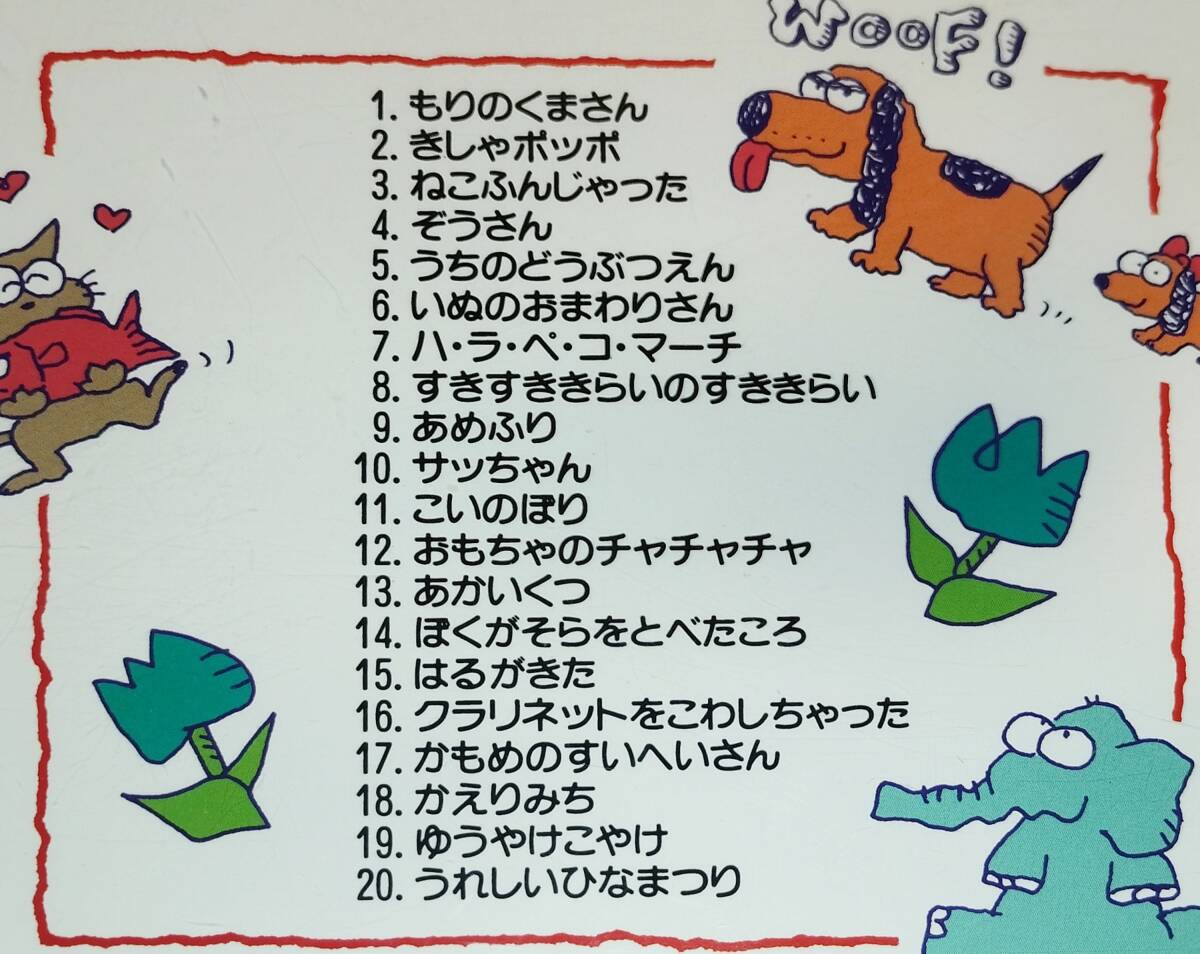 WooF!
1. もりのくまさん
2. きしゃポッポ
3. ねこふんじゃった
4. ぞうさん
5. うちのどうぶつえん
6. いぬのおまわりさん
7. ハ・ラ・ペ・コ・マーチ
8. すきすききらいのすききらい
9. あめふり
10. サッちゃん
11. こいのぼり
12. おもちゃのチャチャチャ
13. あかいくつ
14. ぼくがそらをとべたころ
15. はるがきた
16. クラリネットをこわしちゃった
17. かもめのすいへいさん
18. かえりみち
19. ゆうやけこやけ
20. うれしいひなまつり